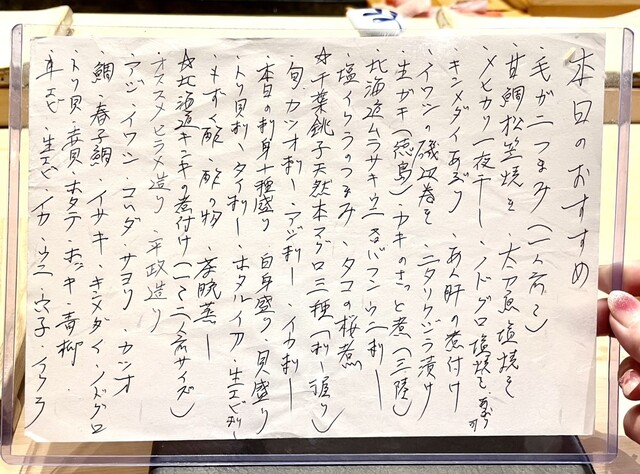 本日のおすすめ
・毛ガニつまみ(一人前〜)
・甘鯛松笠焼き ・太刀魚塩焼き
・メヒカリ一夜干し ・ノドグロ塩焼き あぶり可
・キンメダイあぶり ・あん肝の煮付け
・イワシの磯辺巻き ・ニタリクジラ漬け
・生ガキ(徳島)・カキのさっと煮(三陸)
・北海道ムラサキウニ・バフンウニ刺し
・塩イクラのつまみ ・タコの桜煮
☆千葉銚子天然本マグロ三種(刺し・握り)
・旬カツオ刺し ・アジ刺し ・イカ刺し
・本日の刺身十種盛り・白身盛り・貝盛り
・トリ貝刺し・タイ刺し・ホタルイカ・生エビ刺し
・もずく酢 ・酢の物 ・茶碗蒸し
☆北海道キンキの煮付け(1〜2人前サイズ)
オススメ ヒラメ造り ・平政造り
・アジ・イワシ・コハダ・サヨリ・カツオ
・鯛・春子鯛・イサキ・キンメダイ・ノドグロ
・トリ貝・赤貝・ホタテ・ホッキ・青柳
・車エビ・生エビ・イカ・ウニ・穴子・イクラ